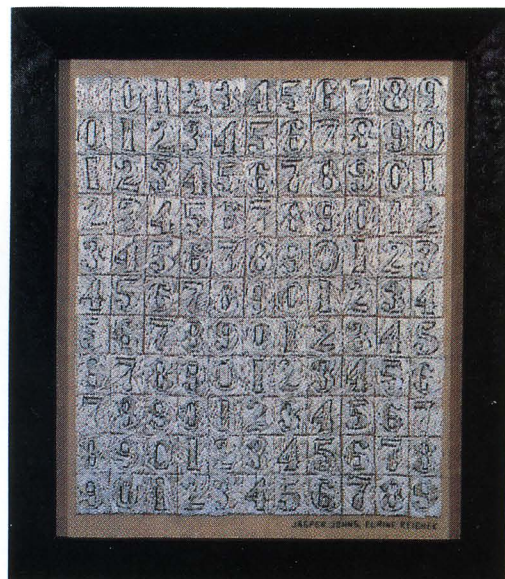 0 1 2 3 4 5 6 7 8 9
0 1 2 3 4 5 6 7 8 9 0
1 2 3 4 5 6 7 8 9 0 1
2 3 4 5 6 7 8 9 0 1 2
3 4 5 6 7 8 9 0 1 2 3
4 5 6 7 8 9 0 1 2 3 4
5 6 7 8 9 0 1 2 3 4 5
6 7 8 9 0 1 2 3 4 5 6
7 8 9 0 1 2 3 4 5 6 7
8 9 0 1 2 3 4 5 6 7 8
9 0 1 2 3 4 5 6 7 8 9
JASPER JOHNS, ELAINE REICHEK